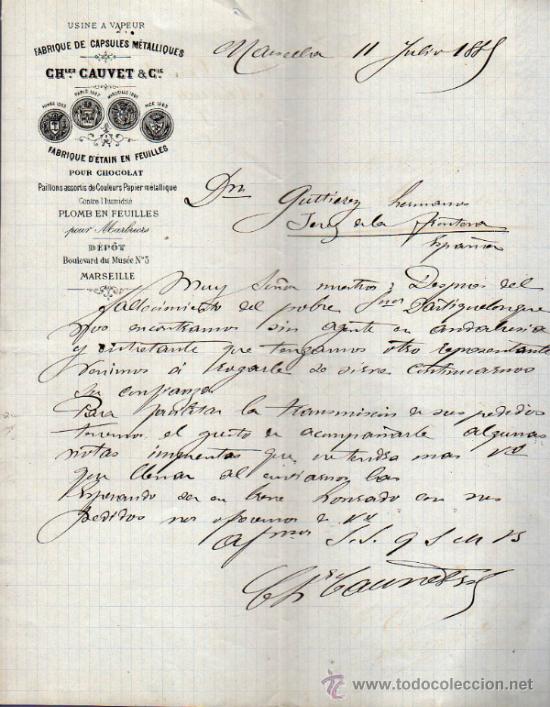 USINE A VAPEUR
FABRIQUE DE CAPSULES MÉTALLIQUES
CHles CAUVET & Cie
FABRIQUE D'ÉTAIN EN FEUILLES
POUR CHOCOLAT
Paillons assortis de Couleurs Papier métallique
Contre l'humidité
PLOMB EN FEUILLES
pour Marbiers
DÉPÔT
Boulevard du Musée No 3
MARSEILLE
11 Julio 18
Gutierrez hermanos
Jerez de la frontera
España
Muy Señor nuestro; Despues del
fallecimiento del pobre
Nos encontramos sin agente en andalusia
y entretante que tengamos otro representante
Venimos á Rogarle se sirva continuarnos
su confianza
Para facilitar la transmision de sus pedidos
tenemos el gusto de acompañarle algunas
notas imprentas que no tendra mas
que llenar al enviarnos las
Esperando ser en breve honrado con sus
pedidos nos ofrecemos de
S.S. q S M B
todocoleccion
www.todocoleccion.net